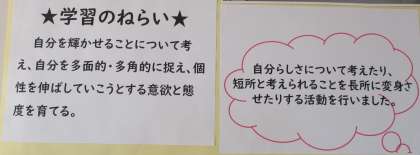 ★学習のねらい★
自分を輝かせることについて考
え、自分を多面的・多角的に捉え、個
性を伸ばしていこうとする意欲と態
度を育てる。
自分らしさについて考えたり、
短所と考えられることを長所に変身さ
せたりする活動を行いました。